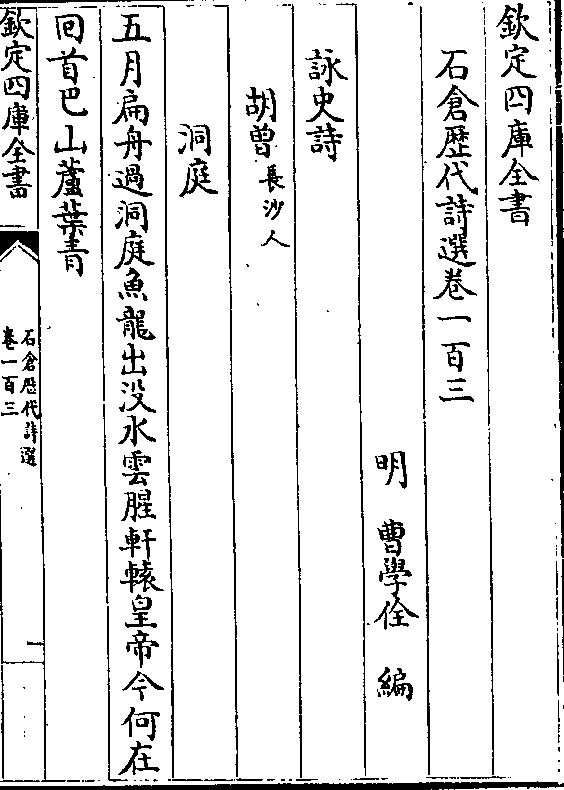 欽定四庫全書
石倉歷代詩選卷一百三
明　曹學佺　編
詠史詩
胡曾長沙人
洞庭
五月扁舟過洞庭魚龍出没水雲腥軒轅皇帝今何在
回首巴山蘆葉青
欽定四庫全書
石倉歷代詩選
卷一百三
一